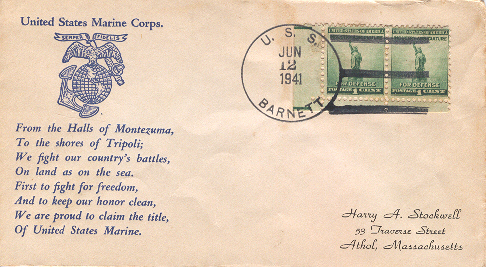 United States Marine Corps.
SEMPER FIDELIS
From the Halls of Montezuma,
To the shores of Tripoli;
We fight our country's battles,
On land as on the sea.
First to fight for freedom,
And to keep our honor clean,
We are proud to claim the title,
Of United States Marine.
U. S. S.
JUN
12
1941
BARNETT
UNITED STATES OF AMERICA
FOR DEFENSE
POSTAGE 1 CENT
UNITED STATES OF AMERICA
FOR DEFENSE
POSTAGE 1 CENT
Harry A. Stockwell
53 Traverse Street
Athol, Massachusetts